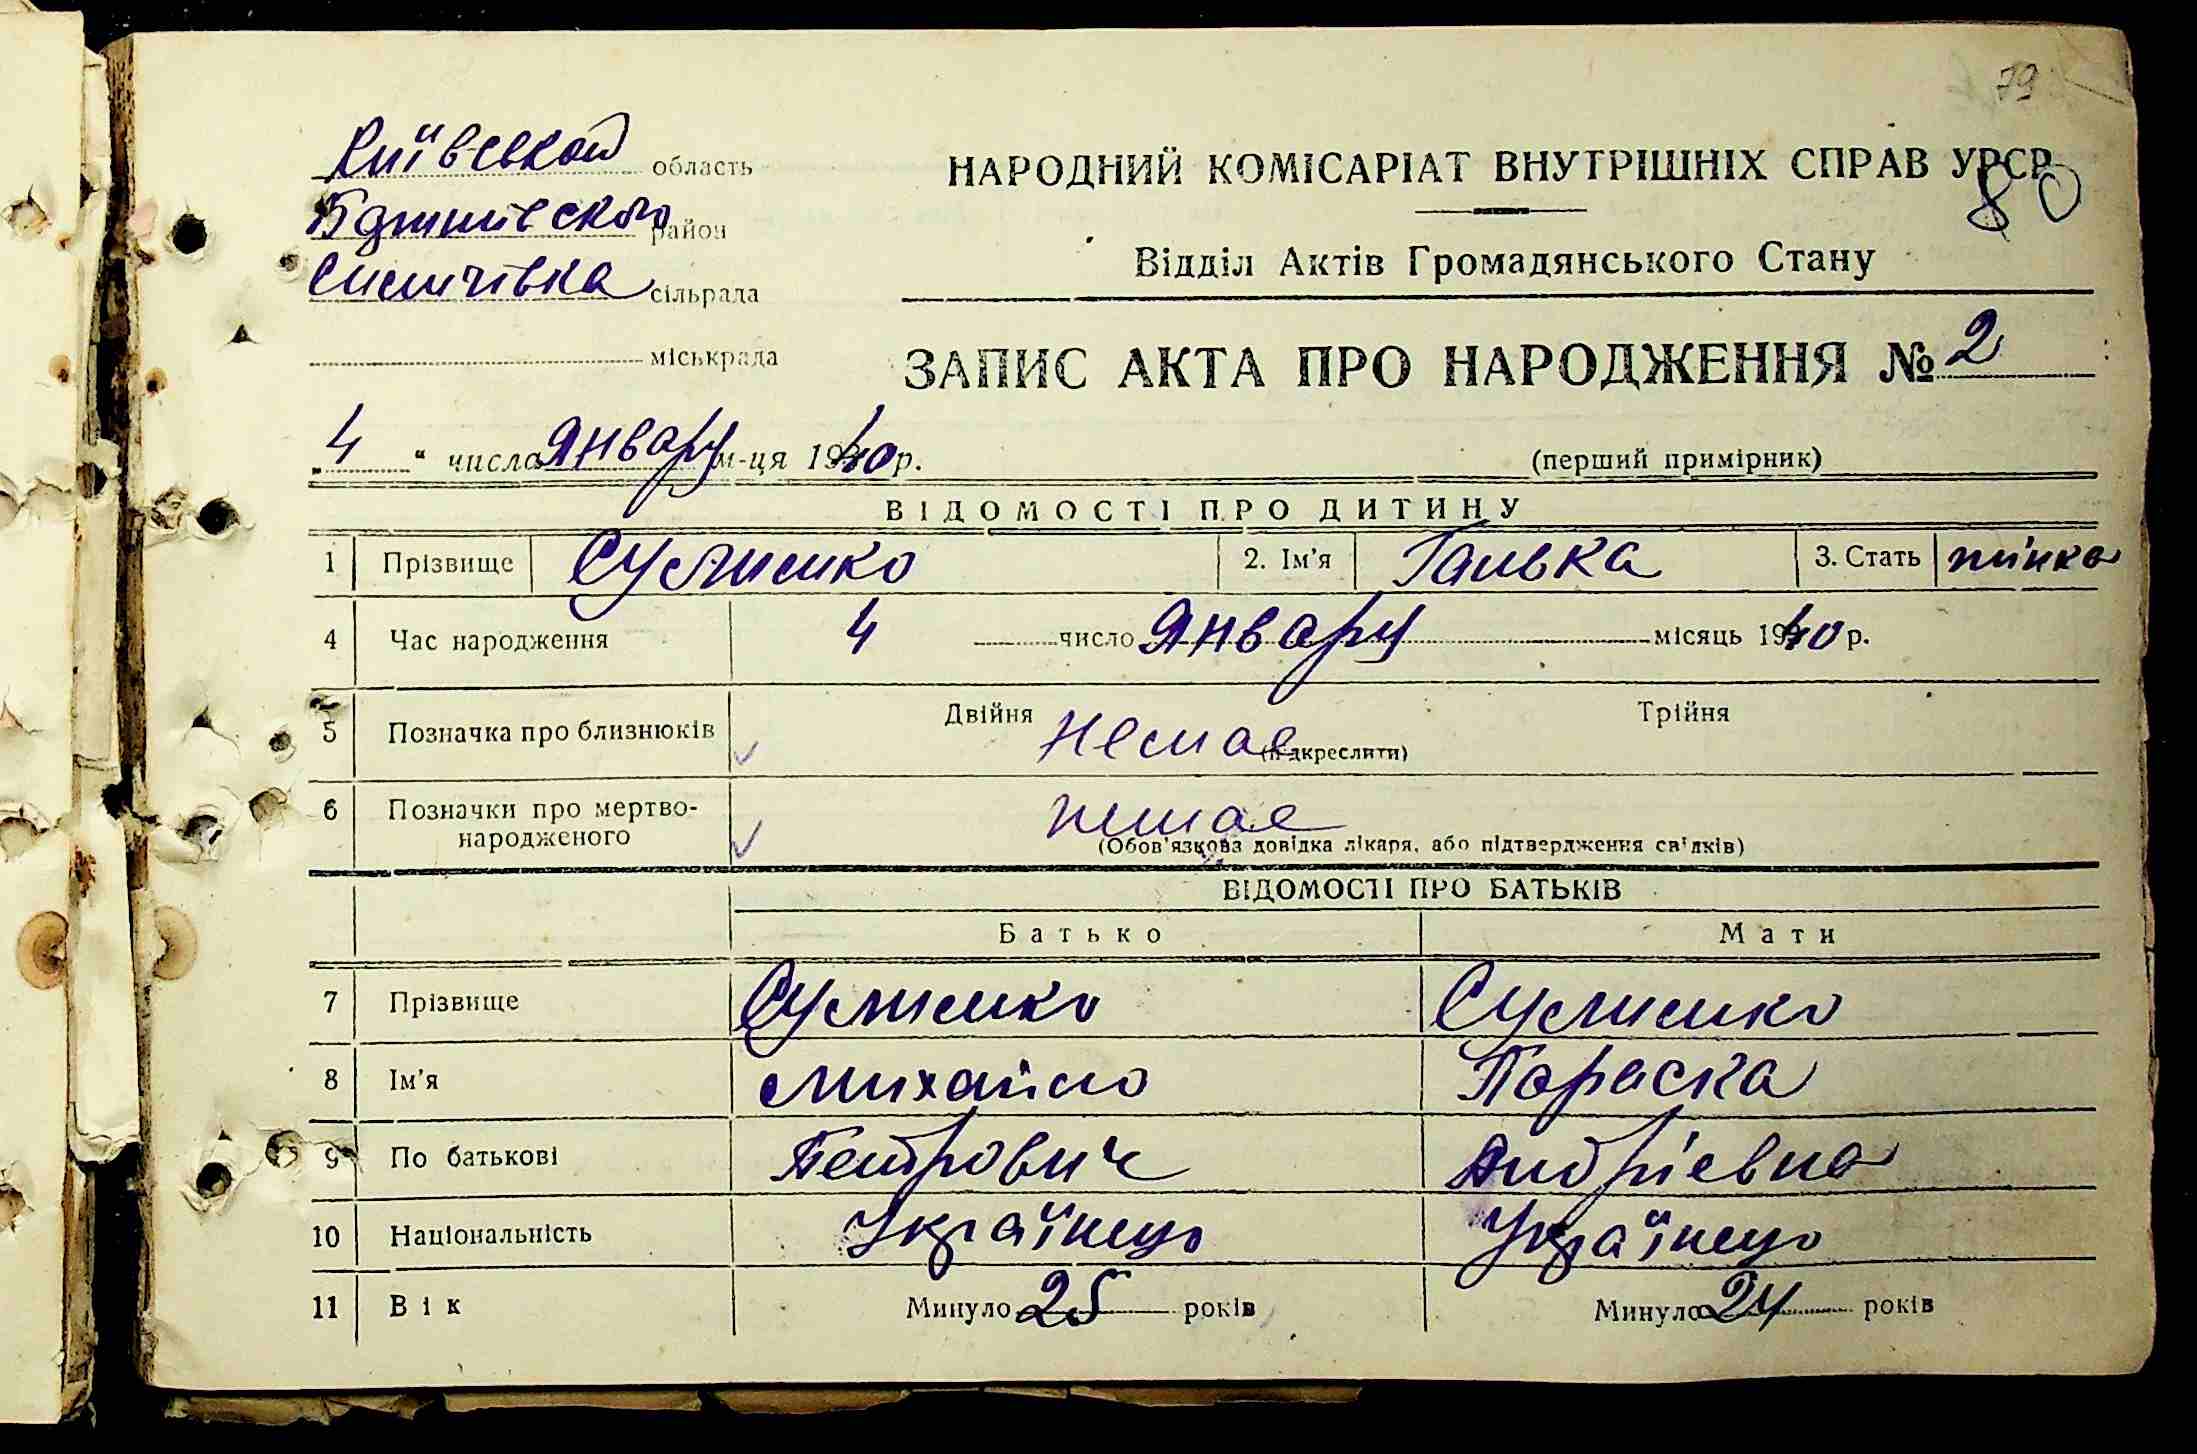 79
Київськой область
НАРОДНИЙ КОМІСАРІАТ ВНУТРІШНІХ СПРАВ УРСР
80
район
Відділ Актів Громадянського Стану
сільрада
міськрада
ЗАПИС АКТА ПРО НАРОДЖЕННЯ № 2
„ 4 “ число Январу м-ця 1940 р.
(перший примірник)
ВІДОМОСТІ ПРО ДИТИНУ
1 Прізвище 2. Ім'я Галька 3. Стать жінка
4 Час народження 4 число Январу місяць 1940 р.
5 Позначка про близнюків Двійня Немае Трійня
(підкреслити)
6 Позначки про мертво-
народженого немае
(Обов'язкова довідка лікаря, або підтвердження свідків)
ВІДОМОСТІ ПРО БАТЬКІВ
Батько Мати
7 Прізвище
8 Ім'я Михайло Параска
9 По батькові Петрович Андріевна
10 Національність Українець Українець
11 Вік Минуло 25 років Минуло 24 років